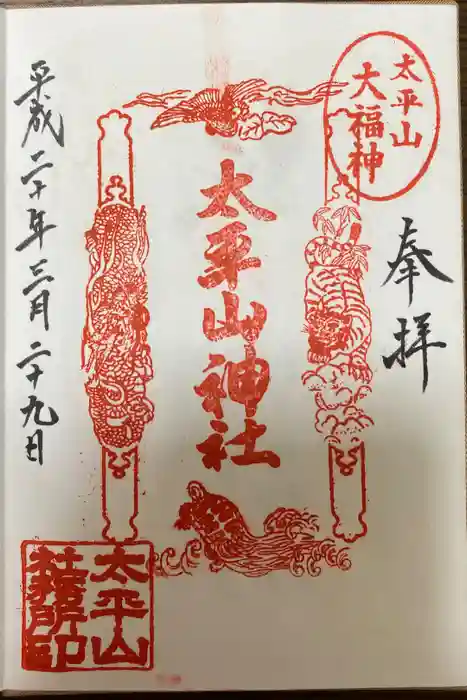 太平山
大福神
奉拝
太平山神社
平成二十年三月二十九日
太平山
社務所印